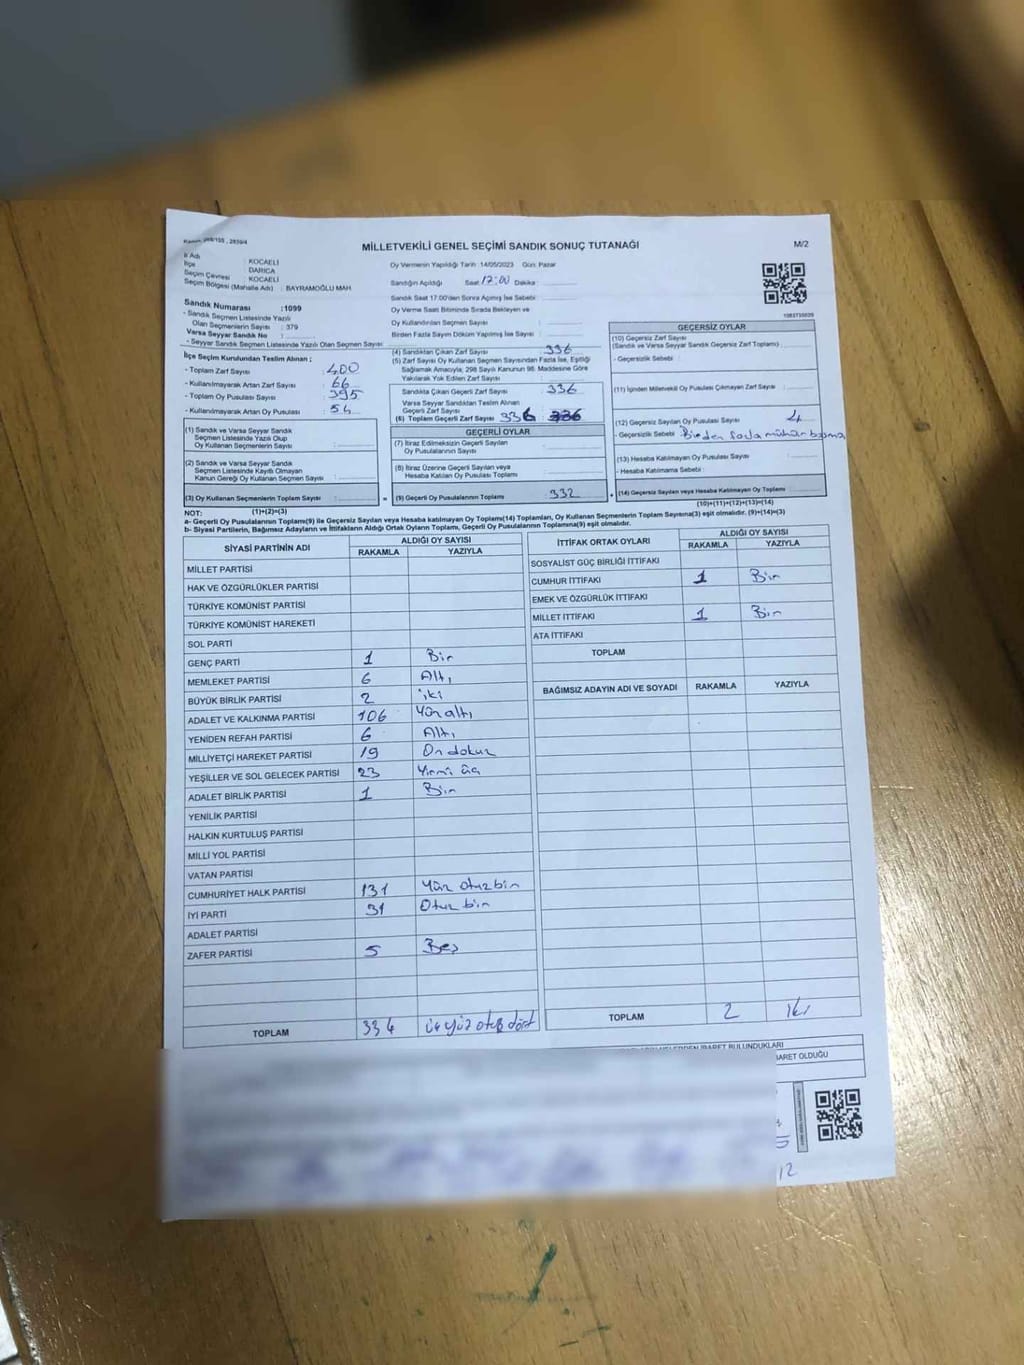 MİLLETVEKİLİ GENEL SEÇİMİ SANDIK SONUÇ TUTANAĞI
M/2
İl Adı : KOCAELİ
İlçe : DARICA
Seçim Çevresi : KOCAELİ
Seçim Bölgesi (Mahalle Adı) : BAYRAMOĞLU MAH
Oy Vermenin Yapıldığı Tarih: 14/05/2023 Gün: Pazar
Sandığın Açıldığı Saat 17:00 Dakika :
Sandık Saat 17.00'den Sonra Açılmış İse Sebebi
Oy Verme Saati Bitiminde Sırada Bekleyen ve
Oy Kullandırılan Seçmen Sayısı
Birden Fazla Sayım Döküm Yapılmış İse Sayısı
Sandık Numarası : 1099
- Sandık Seçmen Listesinde Yazılı
Olan Seçmenlerin Sayısı : 379
Varsa Seyyar Sandık No :
- Seyyar Sandık Seçmen Listesinde Yazılı Olan Seçmen Sayısı
İlçe Seçim Kurulundan Teslim Alınan ;
- Toplam Zarf Sayısı : 400
- Kullanılmayarak Artan Zarf Sayısı : 66
- Toplam Oy Pusulası Sayısı : 395
- Kullanılmayarak Artan Oy Pusulası : 54
(1) Sandık ve Varsa Seyyar Sandık
Seçmen Listesinde Yazılı Olup
Oy Kullanan Seçmenlerin Sayısı
(2) Sandık ve Varsa Seyyar Sandık
Seçmen Listesinde Kayıtlı Olmayan
Kanun Gereği Oy Kullanan Seçmenlerin Sayısı
(3) Oy Kullanan Seçmenlerin Toplam Sayısı :
(4) Sandıktan Çıkan Zarf Sayısı : 336
(5) Zarf Sayısı Oy Kullanan Seçmen Sayısından Fazla İse, Eşitliği
Sağlamak Amacıyla, 298 Sayılı Kanunun 98. Maddesine Göre
Yakılarak Yok Edilen Zarf Sayısı :
Sandıkta Çıkan Geçerli Zarf Sayısı : 336
Varsa Seyyar Sandıktan Teslim Alınan
Geçerli Zarf Sayısı
(6) Toplam Geçerli Zarf Sayısı 336 336
GEÇERLİ OYLAR
(7) İtiraz Edilmeksizin Geçerli Sayılan
Oy Pusulalarının Sayısı
(8) İtiraz Üzerine Geçerli Sayılan veya
Hesaba Katılan Oy Pusulası Toplamı
= (9) Geçerli Oy Pusulalarının Toplamı : 332 +
1083735026
GEÇERSİZ OYLAR
(10) Geçersiz Zarf Sayısı
(Sandık ve Varsa Seyyar Sandık Geçersiz Zarf Toplamı) :
- Geçersizlik Sebebi :
(11) İçinden Milletvekili Oy Pusulası Çıkmayan Zarf Sayısı :
(12) Geçersiz Sayılan Oy Pusulası Sayısı : 4
- Geçersizlik Sebebi : Birden fazla mühür basma
(13) Hesaba Katılmayan Oy Pusulası Sayısı
- Hesaba Katılmama Sebebi :
(14) Geçersiz Sayılan veya Hesaba Katılmayan Oy Toplamı :
(10)+(11)+(12)+(13)=(14)
NOT: (1)+(2)=(3)
a- Geçerli Oy Pusulalarının Toplamı(9) ile Geçersiz Sayılan veya Hesaba katılmayan Oy Toplamı(14) Toplamları, Oy Kullanan Seçmenlerin Toplam Sayısına(3) eşit olmalıdır. (9)+(14)=(3)
b- Siyasi Partilerin, Bağımsız Adayların ve İttifakların Aldığı Ortak Oyların Toplamı, Geçerli Oy Pusulalarının Toplamına(9) eşit olmalıdır.
SİYASİ PARTİNİN ADI
ALDIĞI OY SAYISI
RAKAMLA YAZIYLA
MİLLET PARTİSİ
HAK VE ÖZGÜRLÜKLER PARTİSİ
TÜRKİYE KOMÜNİST PARTİSİ
TÜRKİYE KOMÜNİST HAREKETİ
SOL PARTİ
GENÇ PARTİ 1 Bir
MEMLEKET PARTİSİ 6 Altı
BÜYÜK BİRLİK PARTİSİ 2 iki
ADALET VE KALKINMA PARTİSİ 106 Yüz altı
YENİDEN REFAH PARTİSİ 6 Altı
MİLLİYETÇİ HAREKET PARTİSİ 19 On dokuz
YEŞİLLER VE SOL GELECEK PARTİSİ 23 Yirmi üç
ADALET BİRLİK PARTİSİ 1 Bir
YENİLİK PARTİSİ
HALKIN KURTULUŞ PARTİSİ
MİLLİ YOL PARTİSİ
VATAN PARTİSİ
CUMHURİYET HALK PARTİSİ 131 Yüz otuz bir
İYİ PARTİ 31 Otuz bir
ADALET PARTİSİ
ZAFER PARTİSİ 5 Beş
TOPLAM 334 üçyüz otuz dört
İTTİFAK ORTAK OYLARI
ALDIĞI OY SAYISI
RAKAMLA YAZIYLA
SOSYALİST GÜÇ BİRLİĞİ İTTİFAKI
CUMHUR İTTİFAKI 1 Bir
EMEK VE ÖZGÜRLÜK İTTİFAKI
MİLLET İTTİFAKI 1 Bir
ATA İTTİFAKI
TOPLAM
BAĞIMSIZ ADAYIN ADI VE SOYADI RAKAMLA YAZIYLA
TOPLAM 2 İki
BULUNDUKLARI
BARET OLDUĞU
12